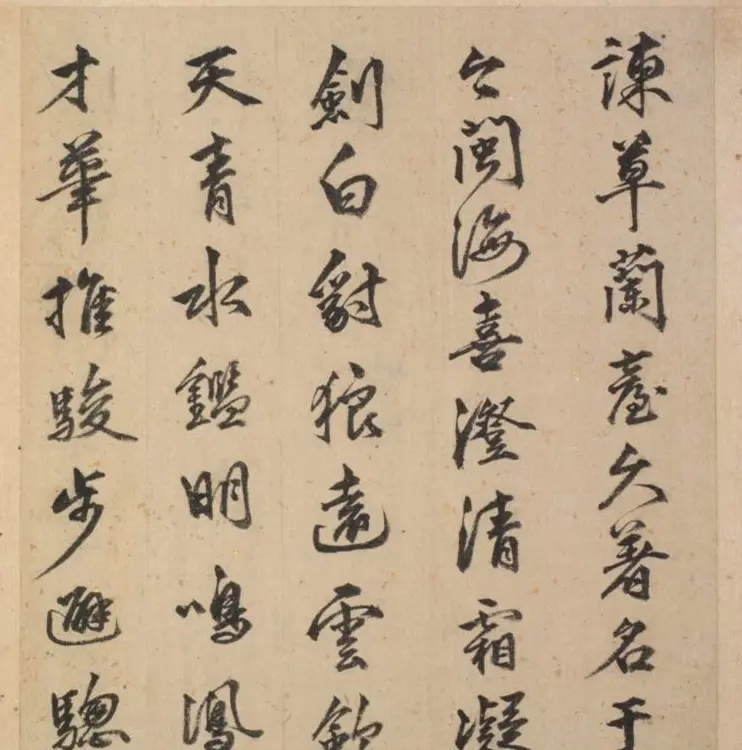 諫草蘭臺久著名于
今閩海喜澄清霜凝
劍白豺狼遠雲斂
天青水鑑明鳴鳳
才華推駿步避驄